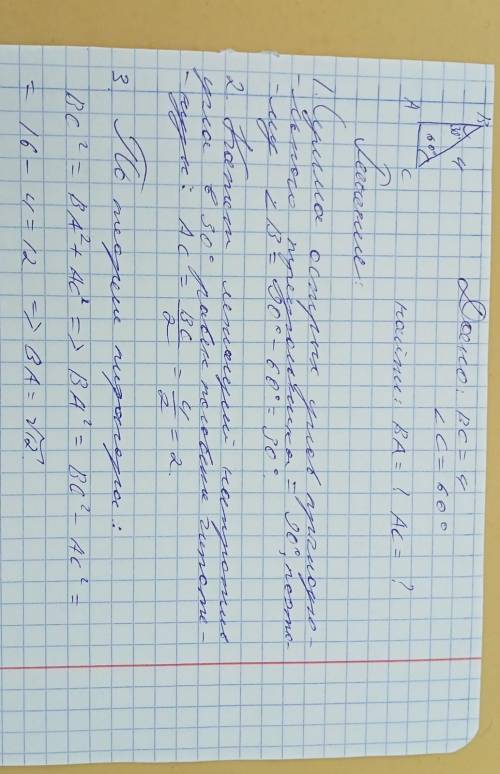 Дано: BC = 4
∠C = 60°
найти: BA = ? AC = ?
B
30°
4
60°
A
C
Решение:
1. Сумма острых углов прямоуго-
-льного треугольника = 90°, поэто-
-му ∠B = 90° - 60° = 30°.
2. Катет лежащий напротив
угла в 30° равен половине гипоте-
-нузы: AC = BC/2 = 4/2 = 2.
3. По теореме пифагора:
BC² = BA² + AC² => BA² = BC² - AC² =
= 16 - 4 = 12 => BA = √12.